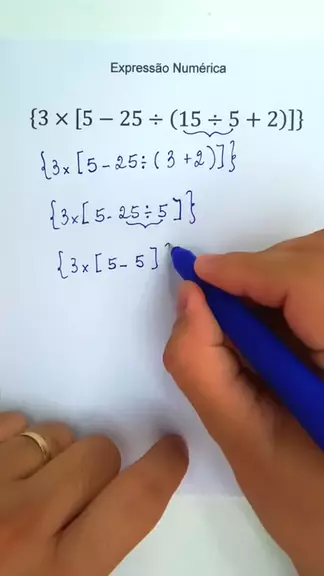 Expressão Numérica
{3 × [5 − 25 ÷ (15 ÷ 5 + 2)]}
{3 × [5 − 25 ÷ (3 + 2)]}
{3 × [5 − 25 ÷ 5]}
{3 × [5 − 5]